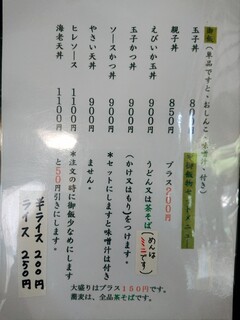 御飯（単品ですと・おしんこ・味噌汁・付き）
玉子丼
親子丼 850円
えびいか玉丼 900円
玉子かつ丼 900円
ソースかつ丼 900円
やさい天丼 900円
ヒレソース 1100円
海老天丼 1100円
プラス200円
うどん又は茶そば（めんはミニです）
（かけ又はもり）をつけます。
＊セットにしますと味噌汁は付き
ません。
＊注文の時に御飯少なめにします
と50円引きにします。
半ライス 200円
ライス 250円
大盛りはプラス150円です。
蕎麦は、全品茶そばです。